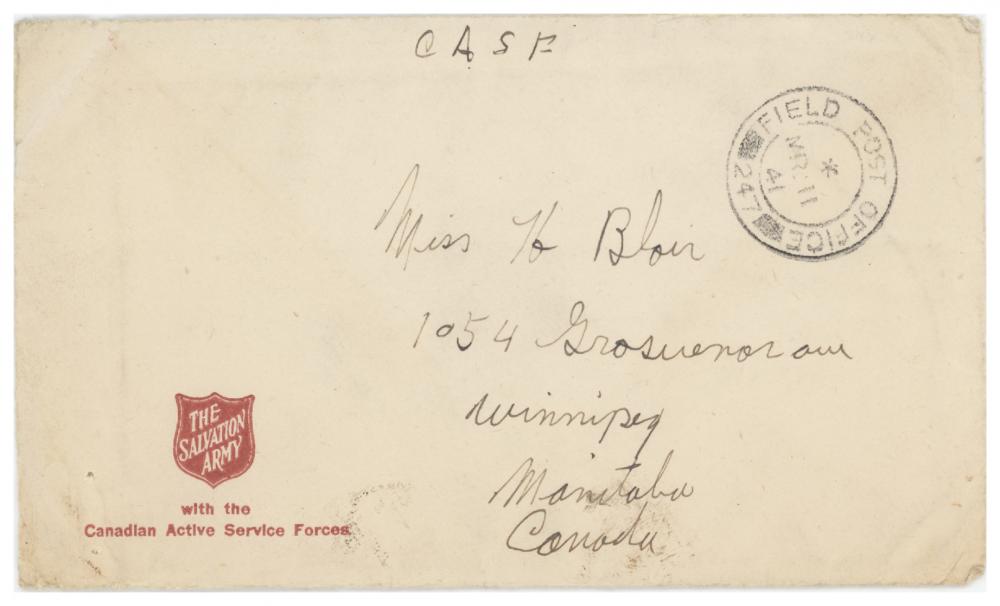 C A S F
FIELD POST OFFICE
247
*
MR 11
41
Miss H Blair
1054 Grosvenor ave
Winnipeg
Manitoba
Canada
THE
SALVATION
ARMY
with the
Canadian Active Service Forces